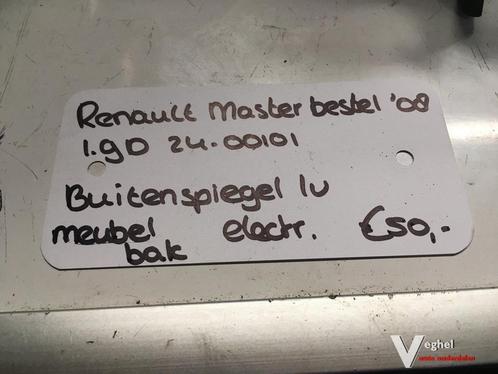 Renault Master bestel '08
1.9D 24.00101
Buitenspiegel lv
meubel electr. €50,-
bak
Veghel
auto onderdelen